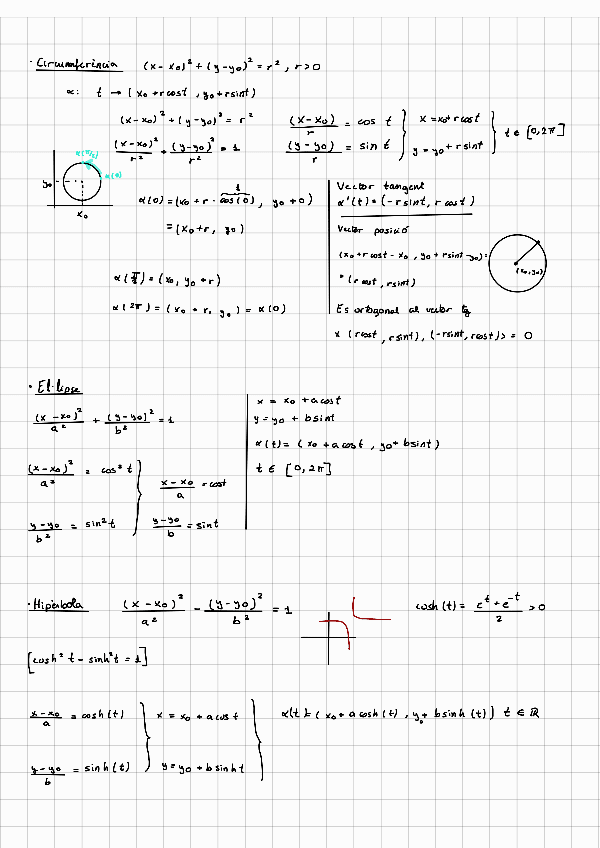 · Circumferència (x-x₀)² + (y-y₀)² = r² , r>0
α: t → (x₀+rcost , y₀+rsint)
(x-x₀)² + (y-y₀)² = r²
(x-x₀)²/r² + (y-y₀)²/r² = 1
(x-x₀)/r = cos t
(y-y₀)/r = sin t
x = x₀+rcost
y = y₀+rsint
t ∈ [0,2π]
α(π/2)
α(0)
y₀
x₀
1
α(0) = (x₀+r·cos(0), y₀+0)
= (x₀+r, y₀)
α(π/2) = (x₀, y₀+r)
α(2π) = (x₀+r, y₀) = α(0)
Vector tangent
α'(t) = (-rsint, rcost)
Vector posició
(x₀+rcost-x₀, y₀+rsint-y₀)=
= (rcost, rsint)
(x₀,y₀)
Es ortogonal al vector tg
(rcost, rsint), (-rsint, rcost)> = 0
· El·lipse
(x-x₀)²/a² + (y-y₀)²/b² = 1
(x-x₀)²/a² = cos²t
y-y₀/b² = sin²t
x-x₀/a = cost
y-y₀/b = sint
x = x₀ + acost
y = y₀ + bsint
α(t) = (x₀+acost, y₀+bsint)
t ∈ [0,2π]
· Hipèrbola (x-x₀)²/a² - (y-y₀)²/b² = 1
cosh(t) = e^t+e^-t/2 >0
[cosh²t - sinh²t = 1]
x-x₀/a = cosh(t)
y-y₀/b = sinh(t)
x = x₀ + acost
y = y₀ + bsinht
α(t) = (x₀+acosh(t), y₀+bsinh(t)) t ∈ ℝ